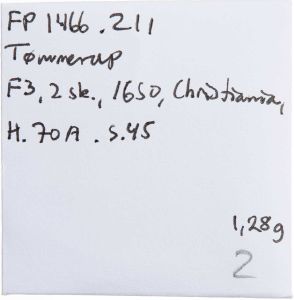 FP 1466.211
Tømmerup
F3, 2 sk., 1650, Christiania,
H.70A . S.45
1,28g
2